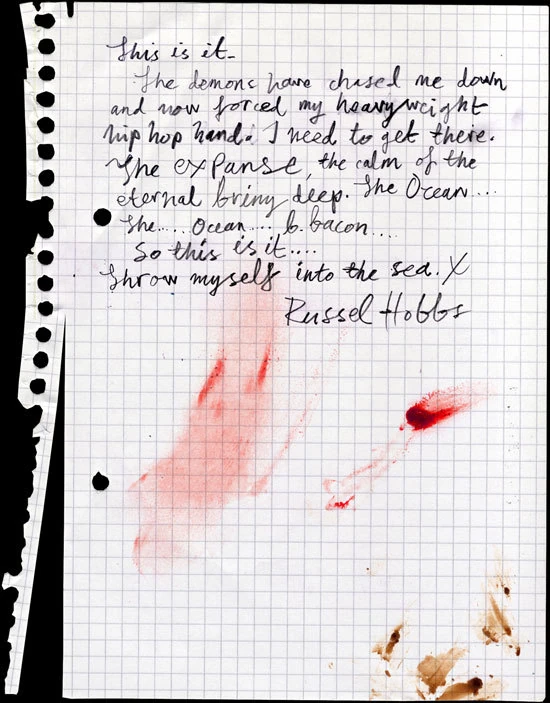 This is it-
The demons have chased me down
and now forced my heavyweight
hip hop hand. I need to get there.
The expanse, the calm of the
eternal briny deep. The Ocean...
The..... Ocean.... b. bacon....
So this is it....
Throw myself into the sea. X
Russel Hobbs